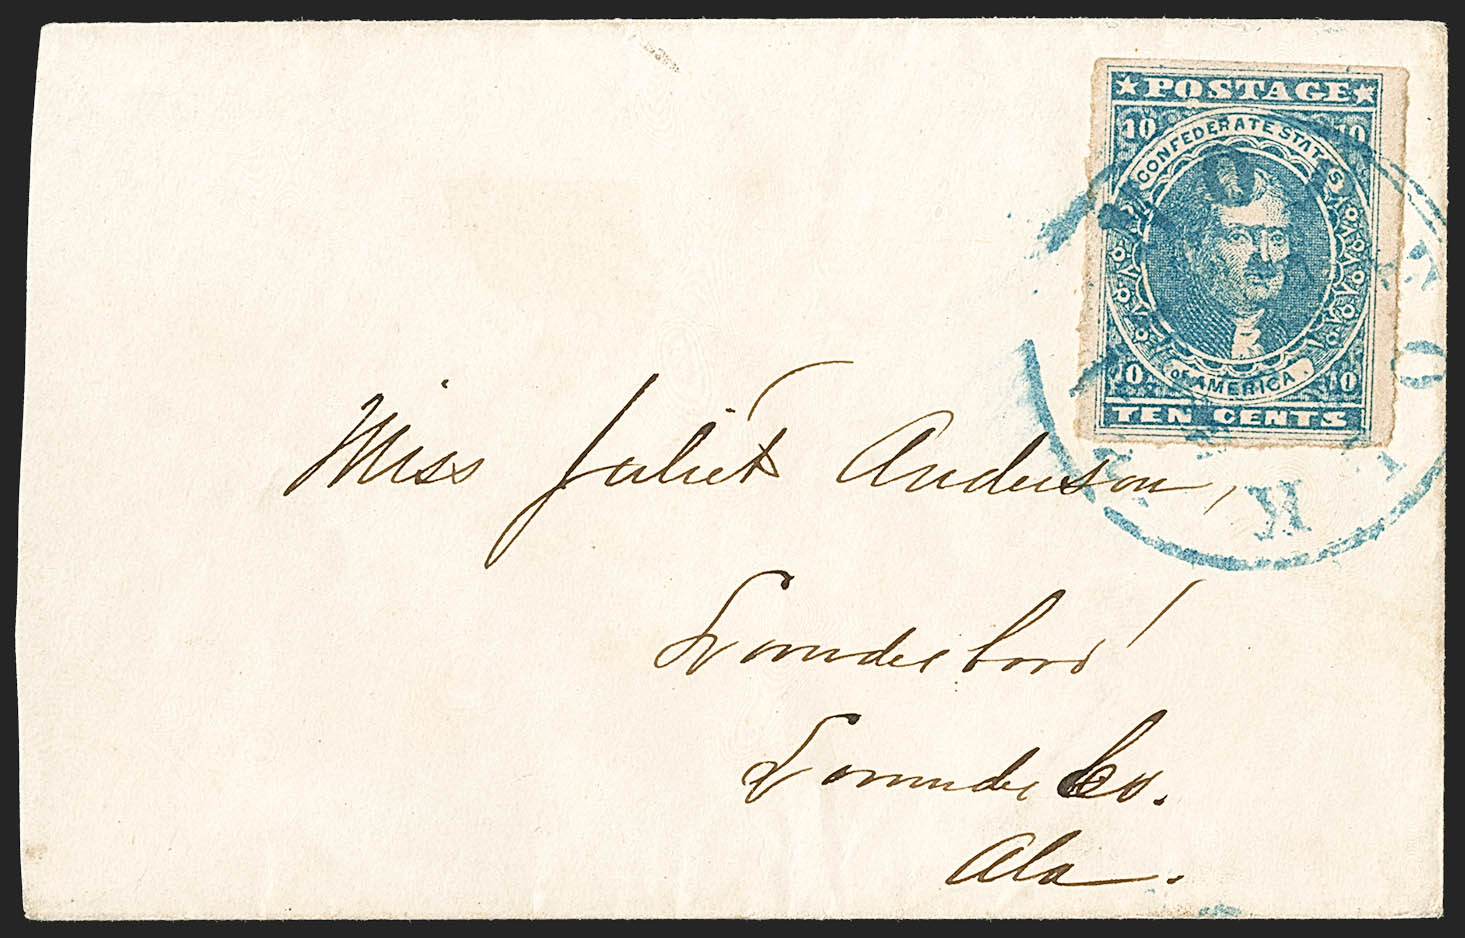 ★ POSTAGE ★
10 10
CONFEDERATE STATES
OF AMERICA.
10 10
TEN CENTS
Miss Juliet Anderson,
Lowndesboro'
Lowndes Co.
Ala.